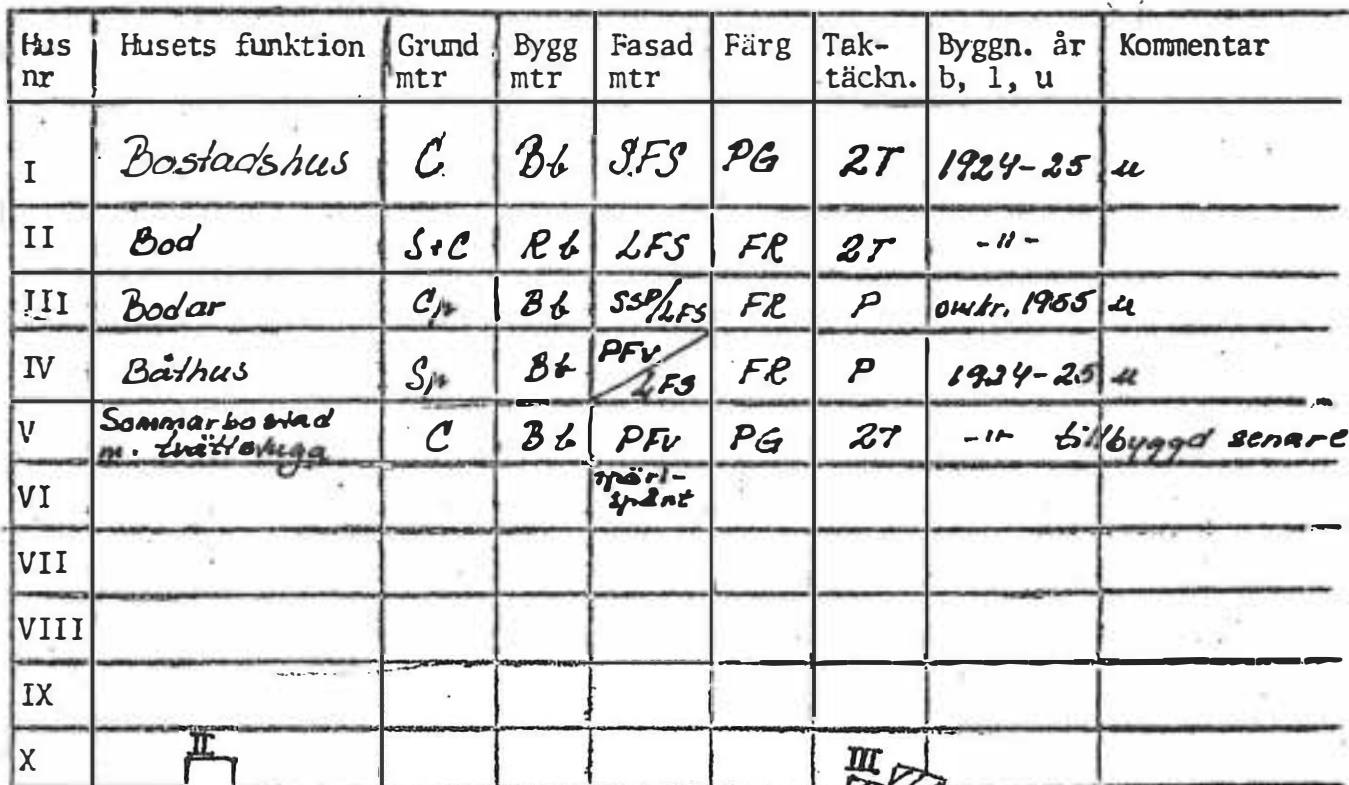 Hus nr Husets funktion Grund mtr Bygg mtr Fasad mtr Färg Tak-täckn. Byggn. år b, l, u Kommentar
I Bostadshus C Bb SFS PG 2T 1924-25 u
II Bod S+C Rb LFS FR 2T -"-
III Bodar Cp Bb SSP/LFS FR P omkr. 1955 u
IV Båthus Sp Bb PFv/LFS FR P 1924-25 u
V Sommarbostad m. tvättstuga C Bb PFv PG 2T -"- tillbyggd senare
VI pärl-spånt
VII
VIII
IX
X
II III